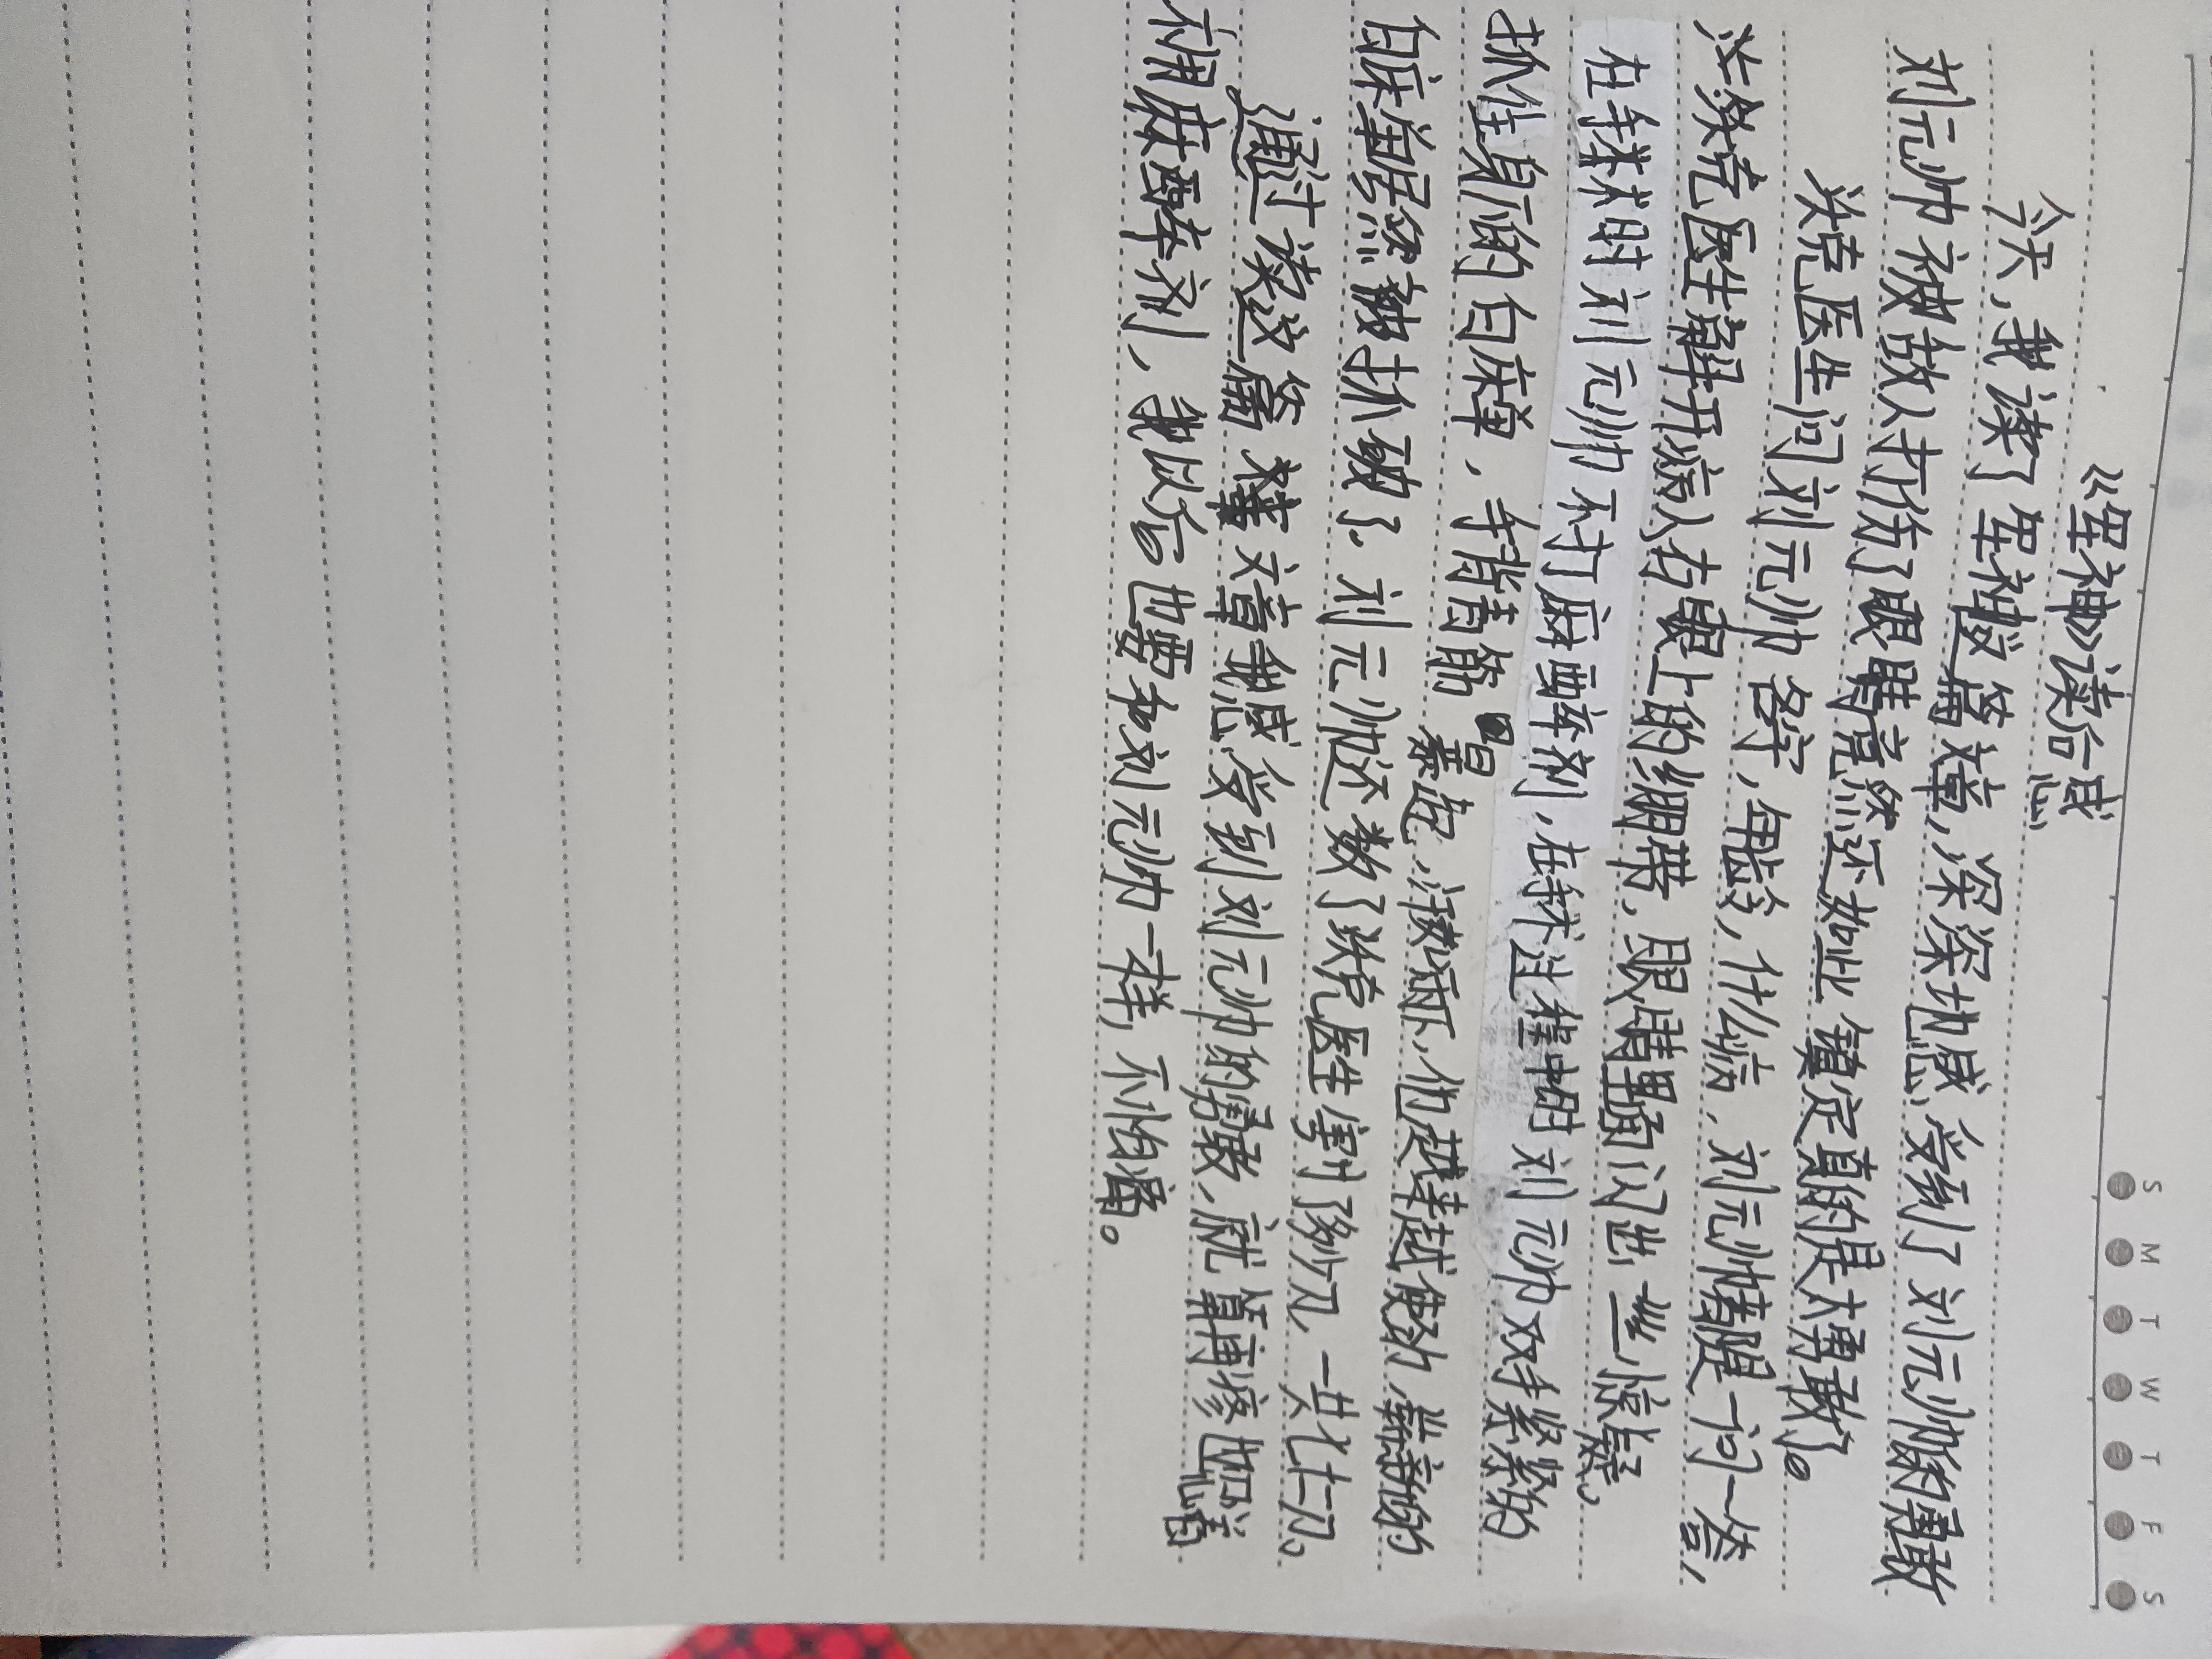 S M T W T F S
《军神》读后感
今天，我读了军神这篇文章，深深地感受到了刘元帅的勇敢
刘元帅被敌人打伤了眼睛竟然还如此镇定真的是太勇敢了。
沃克医生问刘元帅名字，年龄，什么病，刘元帅有一问一答，
沃克医生解开病人右眼上的绷带，眼睛里面闪出一丝惊疑。
在手术时刘元帅不打麻醉剂，在手术过程中刘元帅双手紧紧的
抓住身下的白床单，手背青筋暴起，汗如雨下，他越来越使劲，崭新的
白床单居然被抓破了。刘元帅还数了沃克医生割了多少刀，一共七十二刀。
通过读这篇文章我感受到刘元帅的勇敢，就算再疼也坚
不用麻醉剂，我以后也要和刘元帅一样，不怕痛。